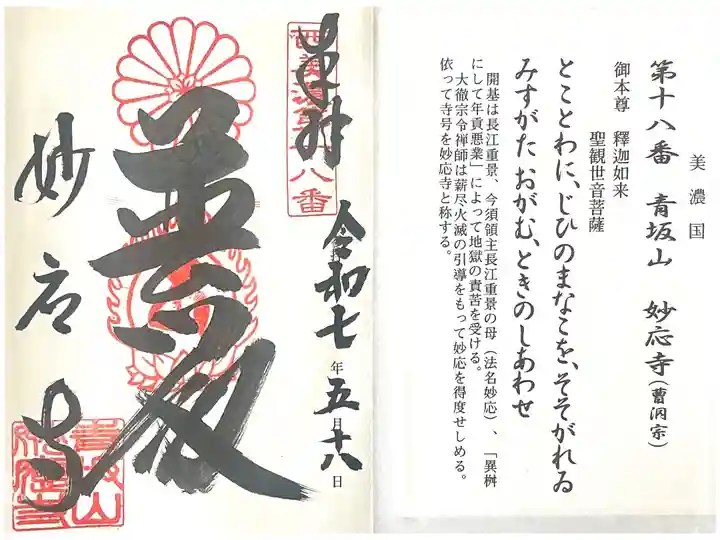 美濃国
第十八番 青坂山 妙応寺(曹洞宗)
御本尊 釋迦如来
聖観世音菩薩
とことわに、じひのまなこを、そそがれる
みすがた おがむ、ときのしあわせ
開基は長江重景、今須領主長江重景の母(法名妙応)、「異桝
にして年貢悪業」によって地獄の責苦を受ける。
大徹宗令禅師は薪尽火滅の引導をもって妙応を得度せしめる。
依って寺号を妙応寺と称する。
西美濃第十八番
奉拝
令和七年五月十八日
妙応寺